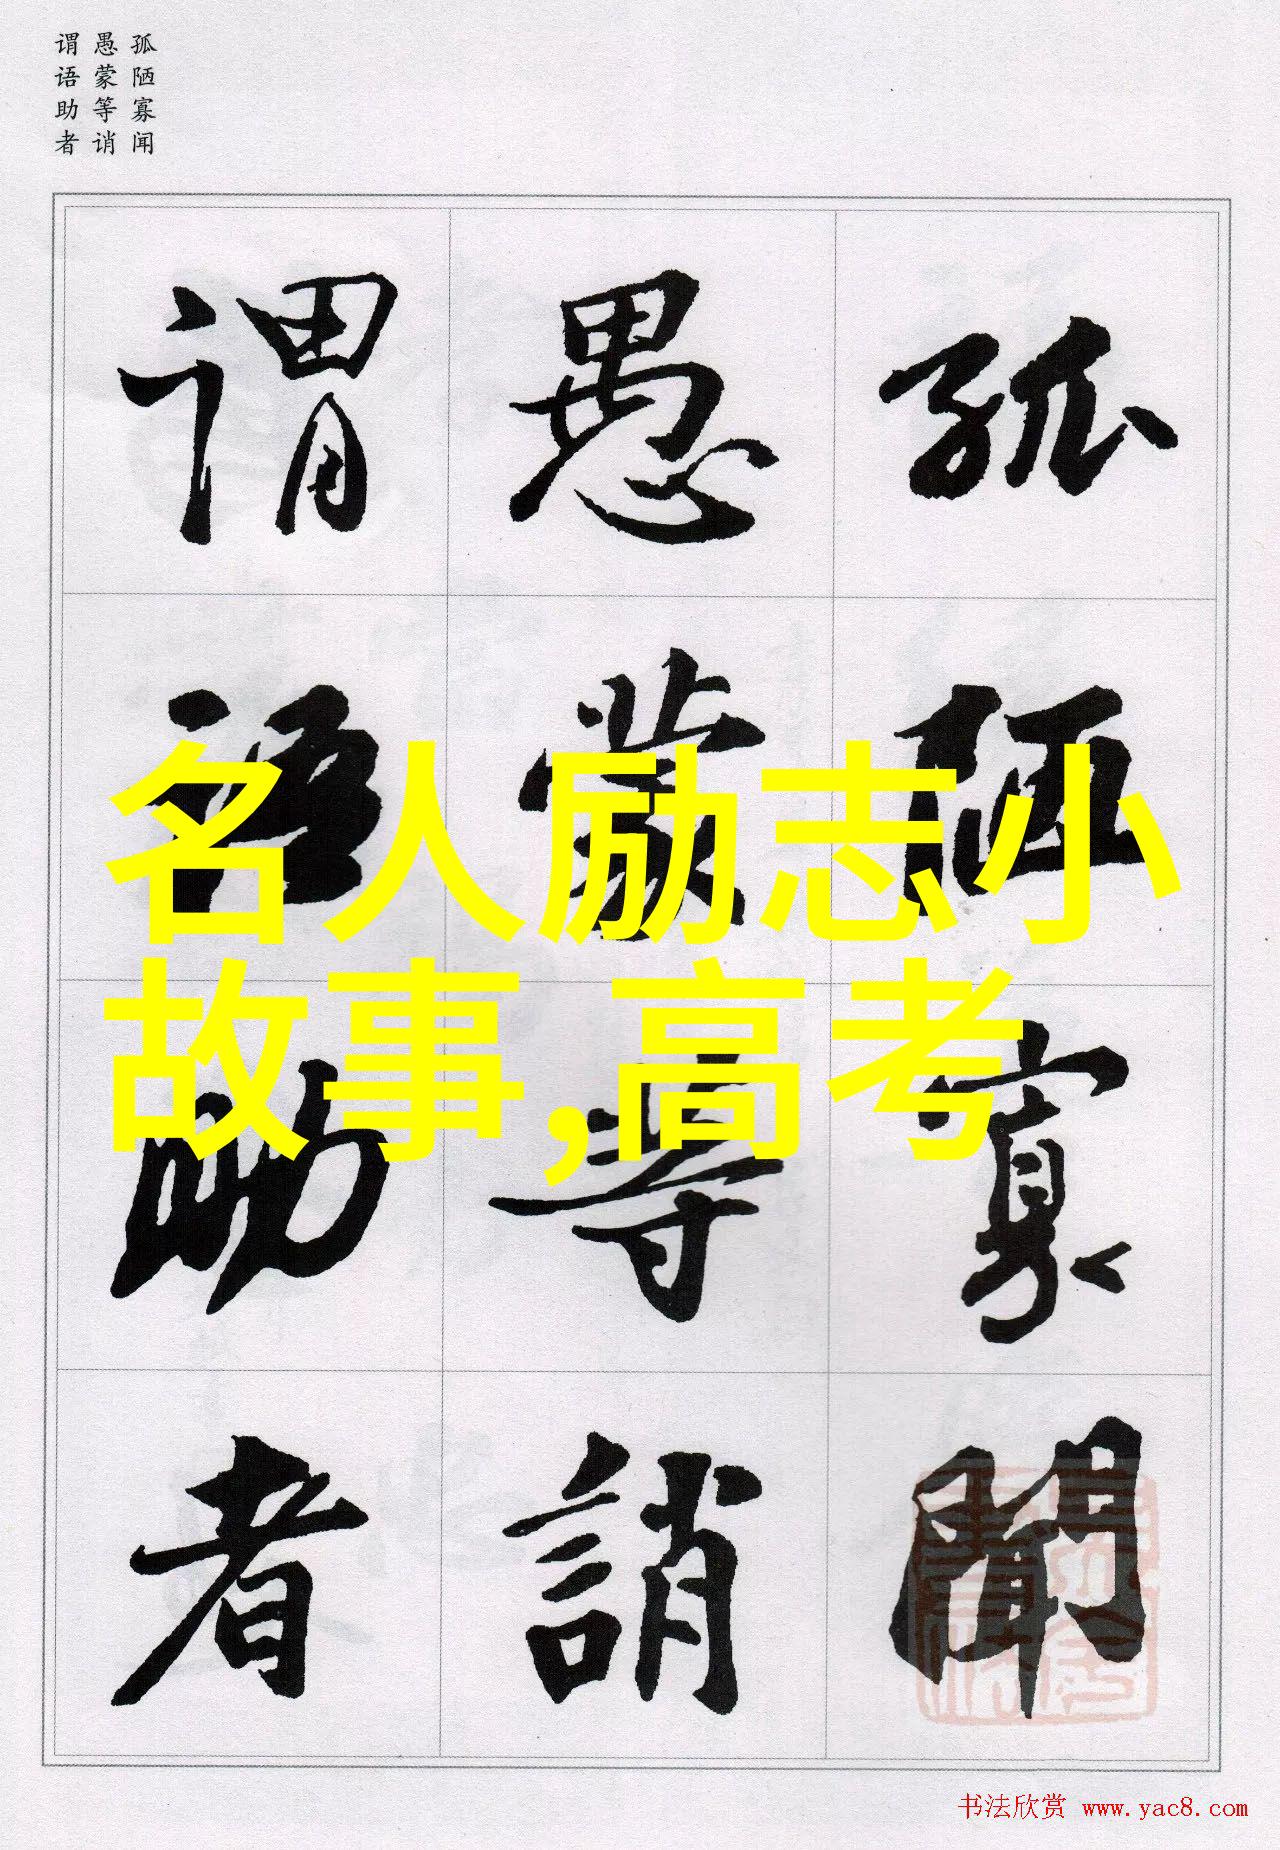 孤陋寡闻
愚蒙等诮
谓语助者
孤陋寡聞
愚蒙等誚
谓语助者
名人励志小
故事,高考
书法欣赏 www.yac8.com